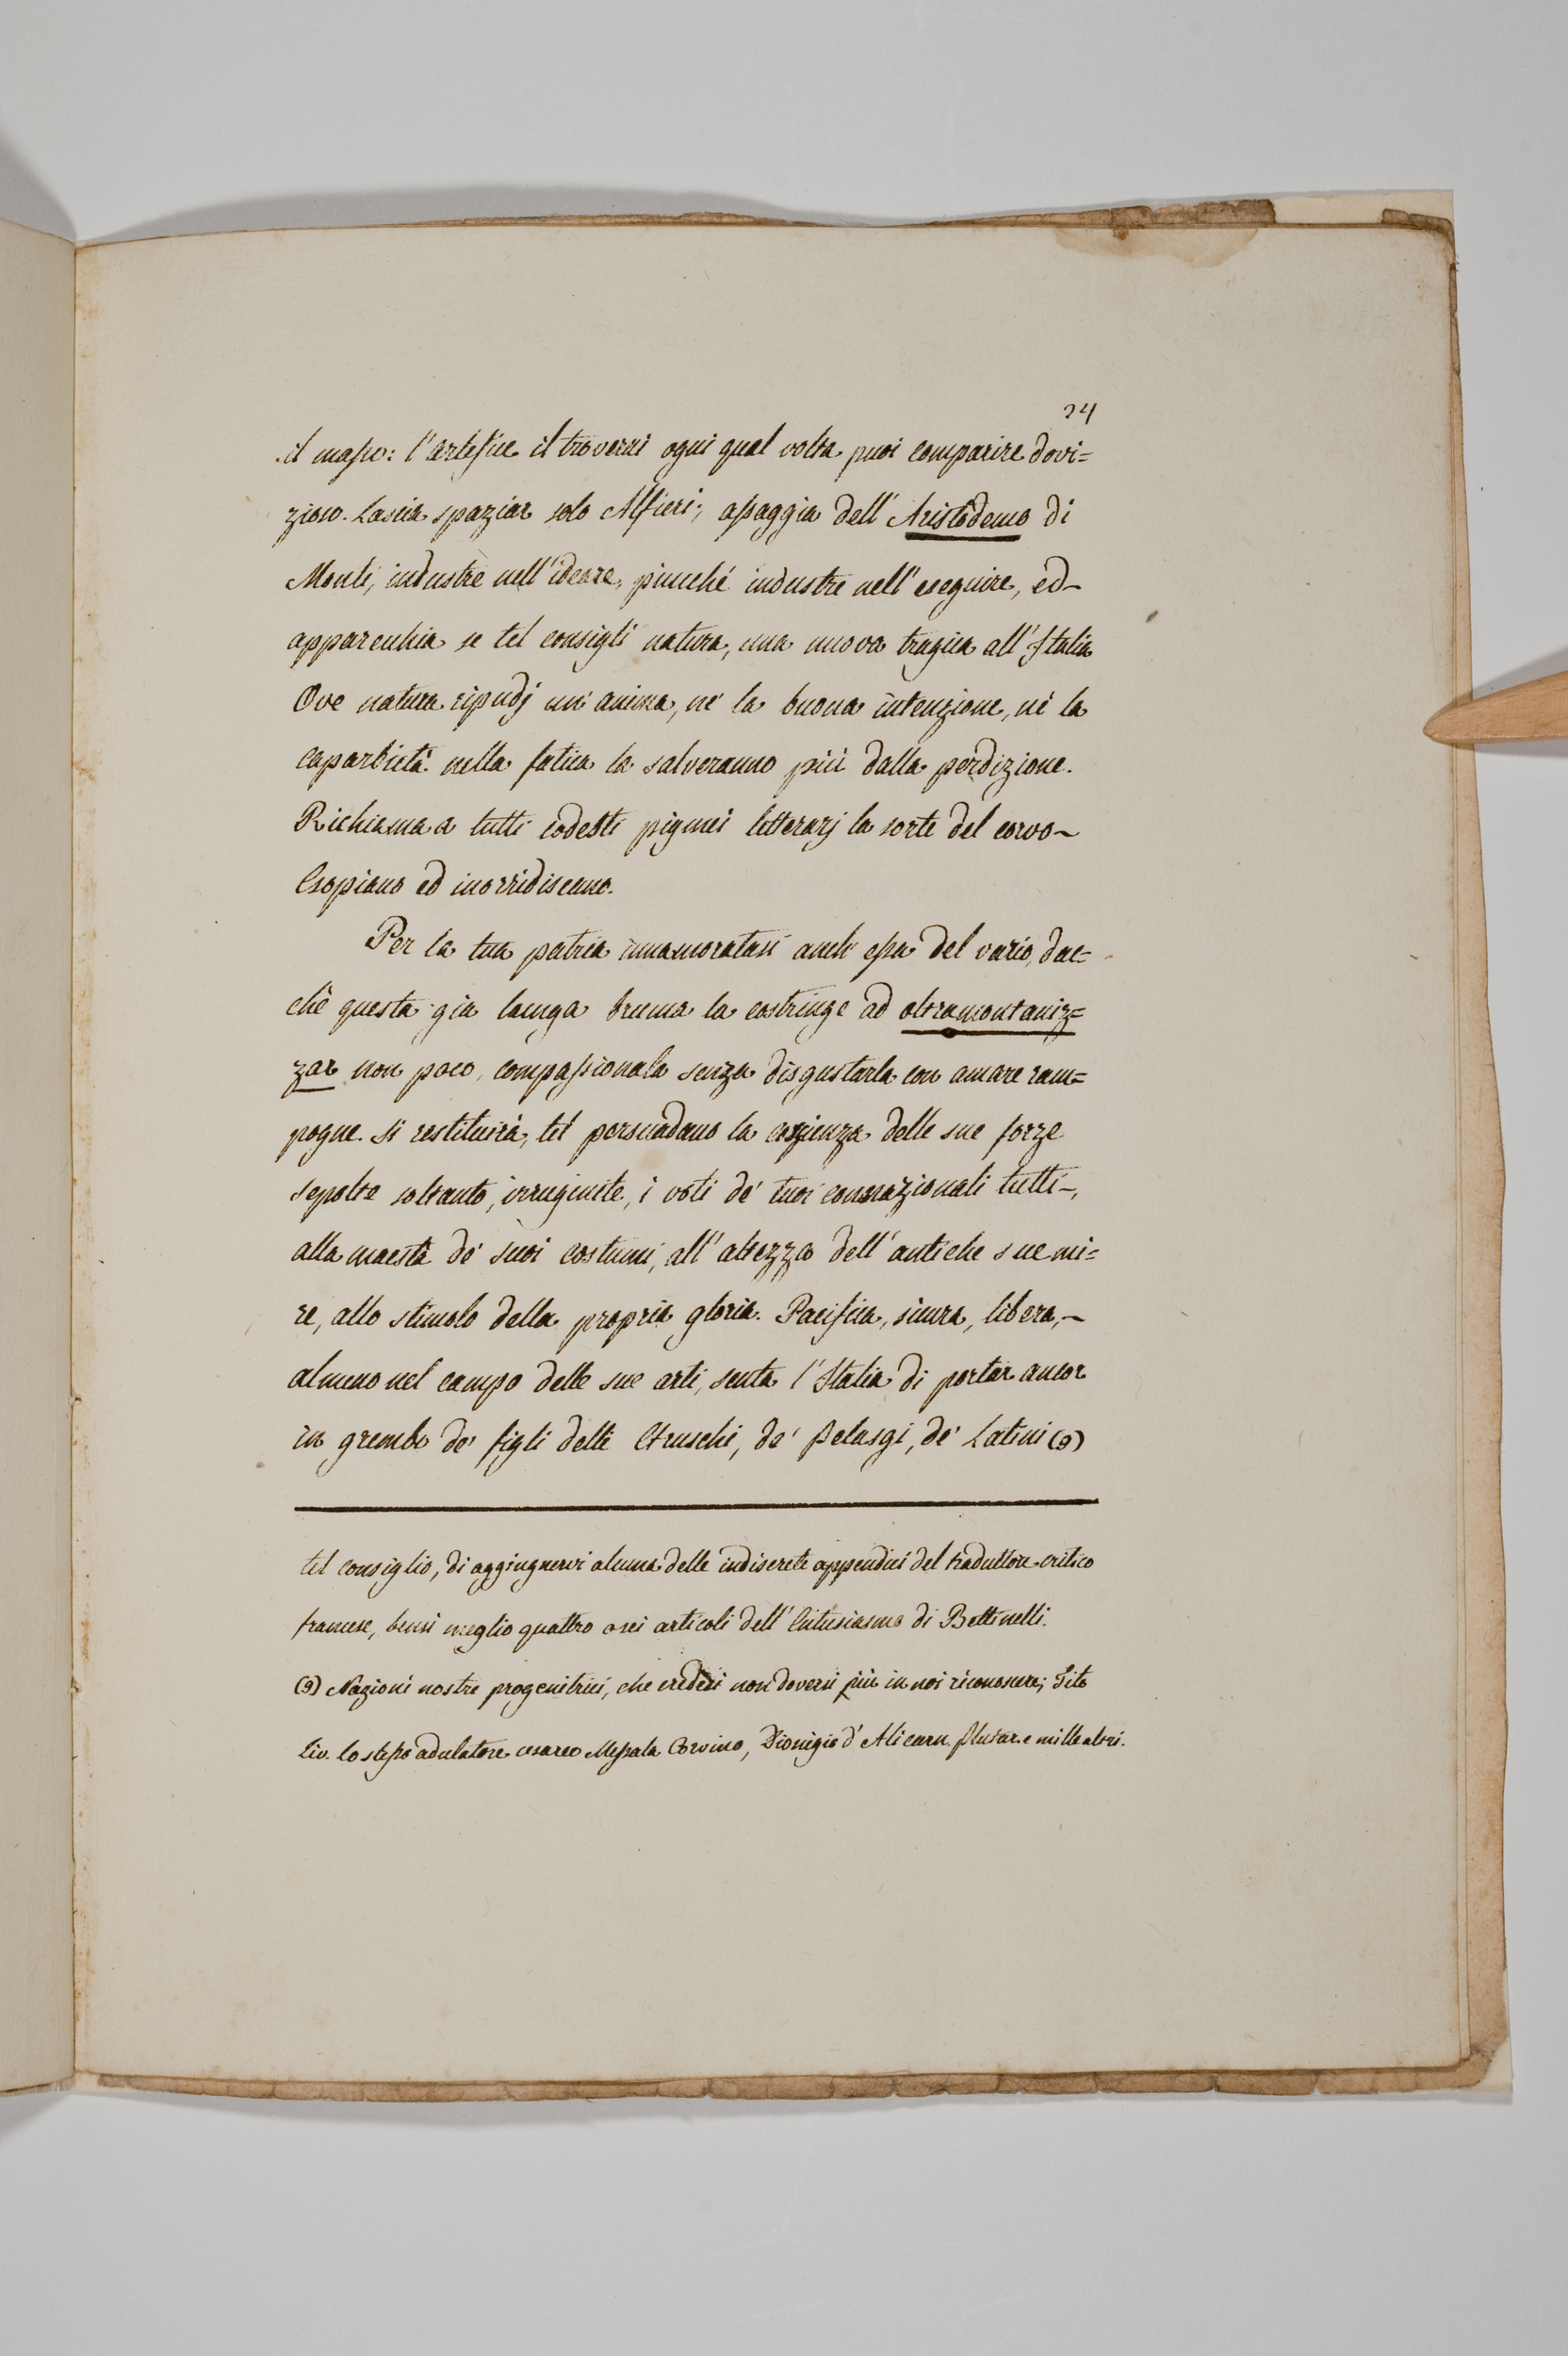 24
il masso: l'artefice il troverai ogni qual volta puoi comparire dovi=
zioso. Lascia spaziar solo Alfieri; assaggia dell'Aristodemo di
Monti, industre nell'ideare, piucché industre nell'eseguire, ed
apparecchia se tel consigli natura, una nuova tragica all'Italia
Ove natura ripudj un'anima, né la buona intenzione, né la
caparbietà nella fatica la salveranno più dalla perdizione.
Richiama a tutti codesti pigmei letterarj la sorte del corvo
Esopiano ed inorridiscano.
Per la tua patria innamoratasi anch'essa del vario, dac=
ché questa già lunga bruma la costringe ad oltramontaniz=
zar non poco, compassionala senza disgustarla con amare ram=
pogne. Si restituirà, tel persuadano la coscienza delle sue forze
sepolte soltanto, irruginite, i voti de' tuoi connazionali tutti,
alla maestà de' suoi costumi, all'altezza dell'antiche sue mi=
re, allo stimolo della propria gloria. Pacifica, sicura, libera,
almeno nel campo delle sue arti, senta l'Italia di portar ancor
in grembo de' figli delli Etruschi, de' Pelasgi, de' Latini (9)
tel consiglio, di aggiugnervi alcuna delle indiscrete appendici del traduttore critico
francese, bensì meglio quattro o sei articoli dell'Entusiasmo di Bettinelli.
(9) Nazioni nostre progenitrici, che credesi non doversi più in noi riconoscere; Tito
Liv. lo stesso adulatore cesareo Messala Corvino, Dionigio d'Alicarn. Plutar. e mille altri.